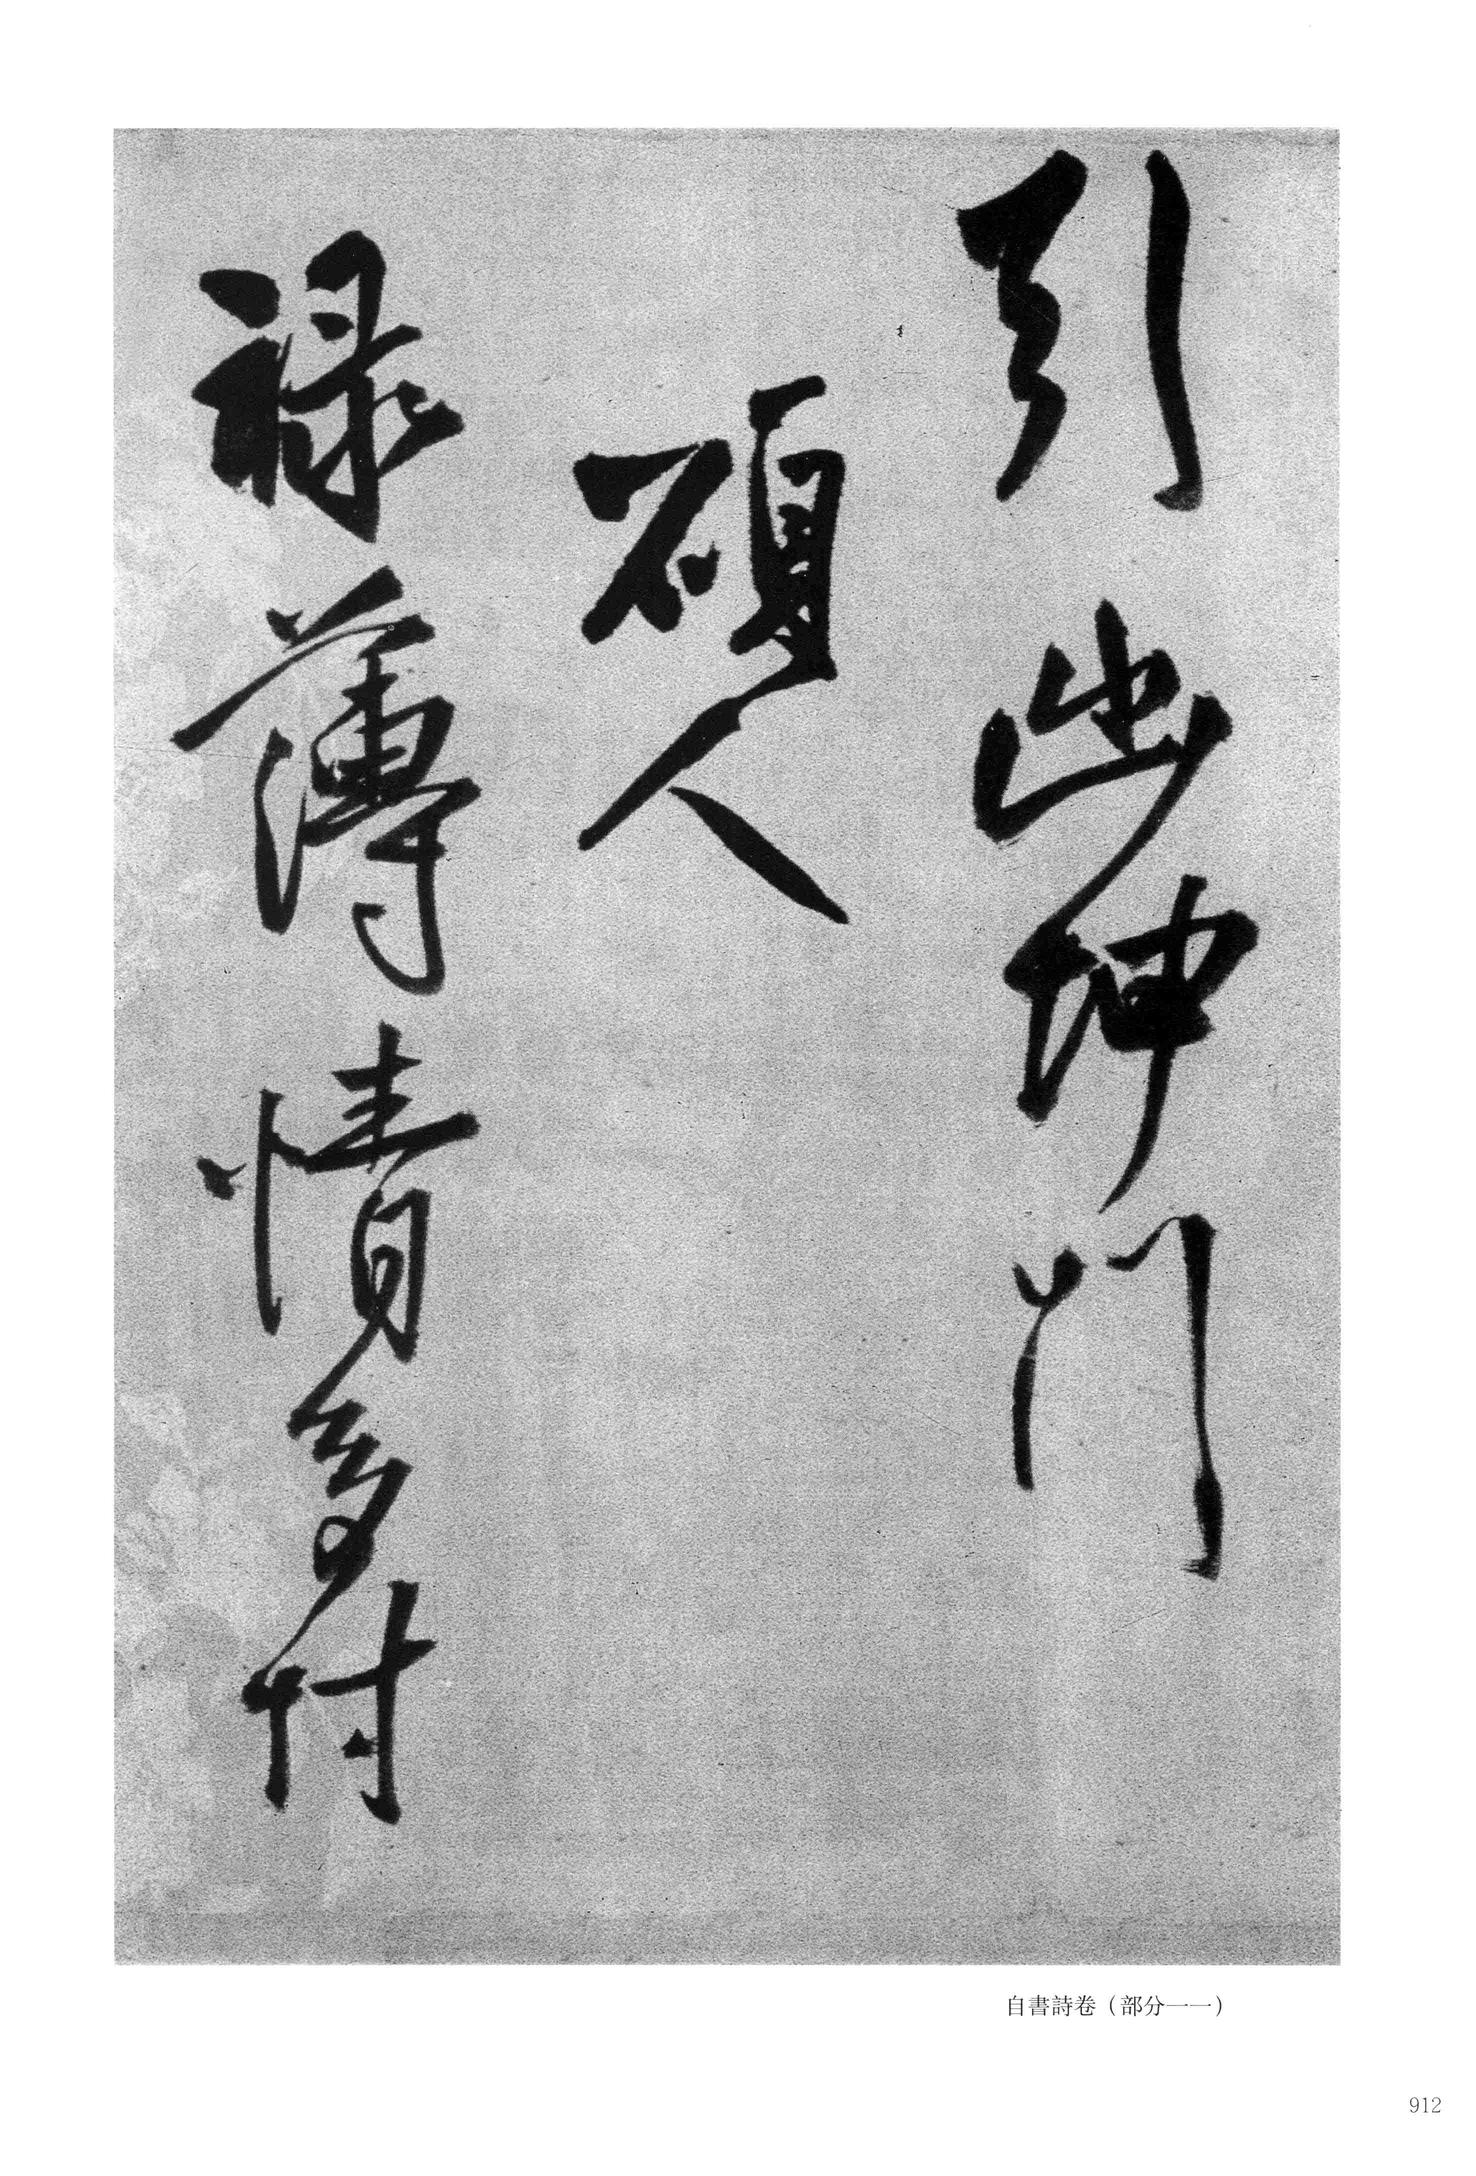 引紳門
碩人
祿薄情多付
自書詩卷（部分一一）
912